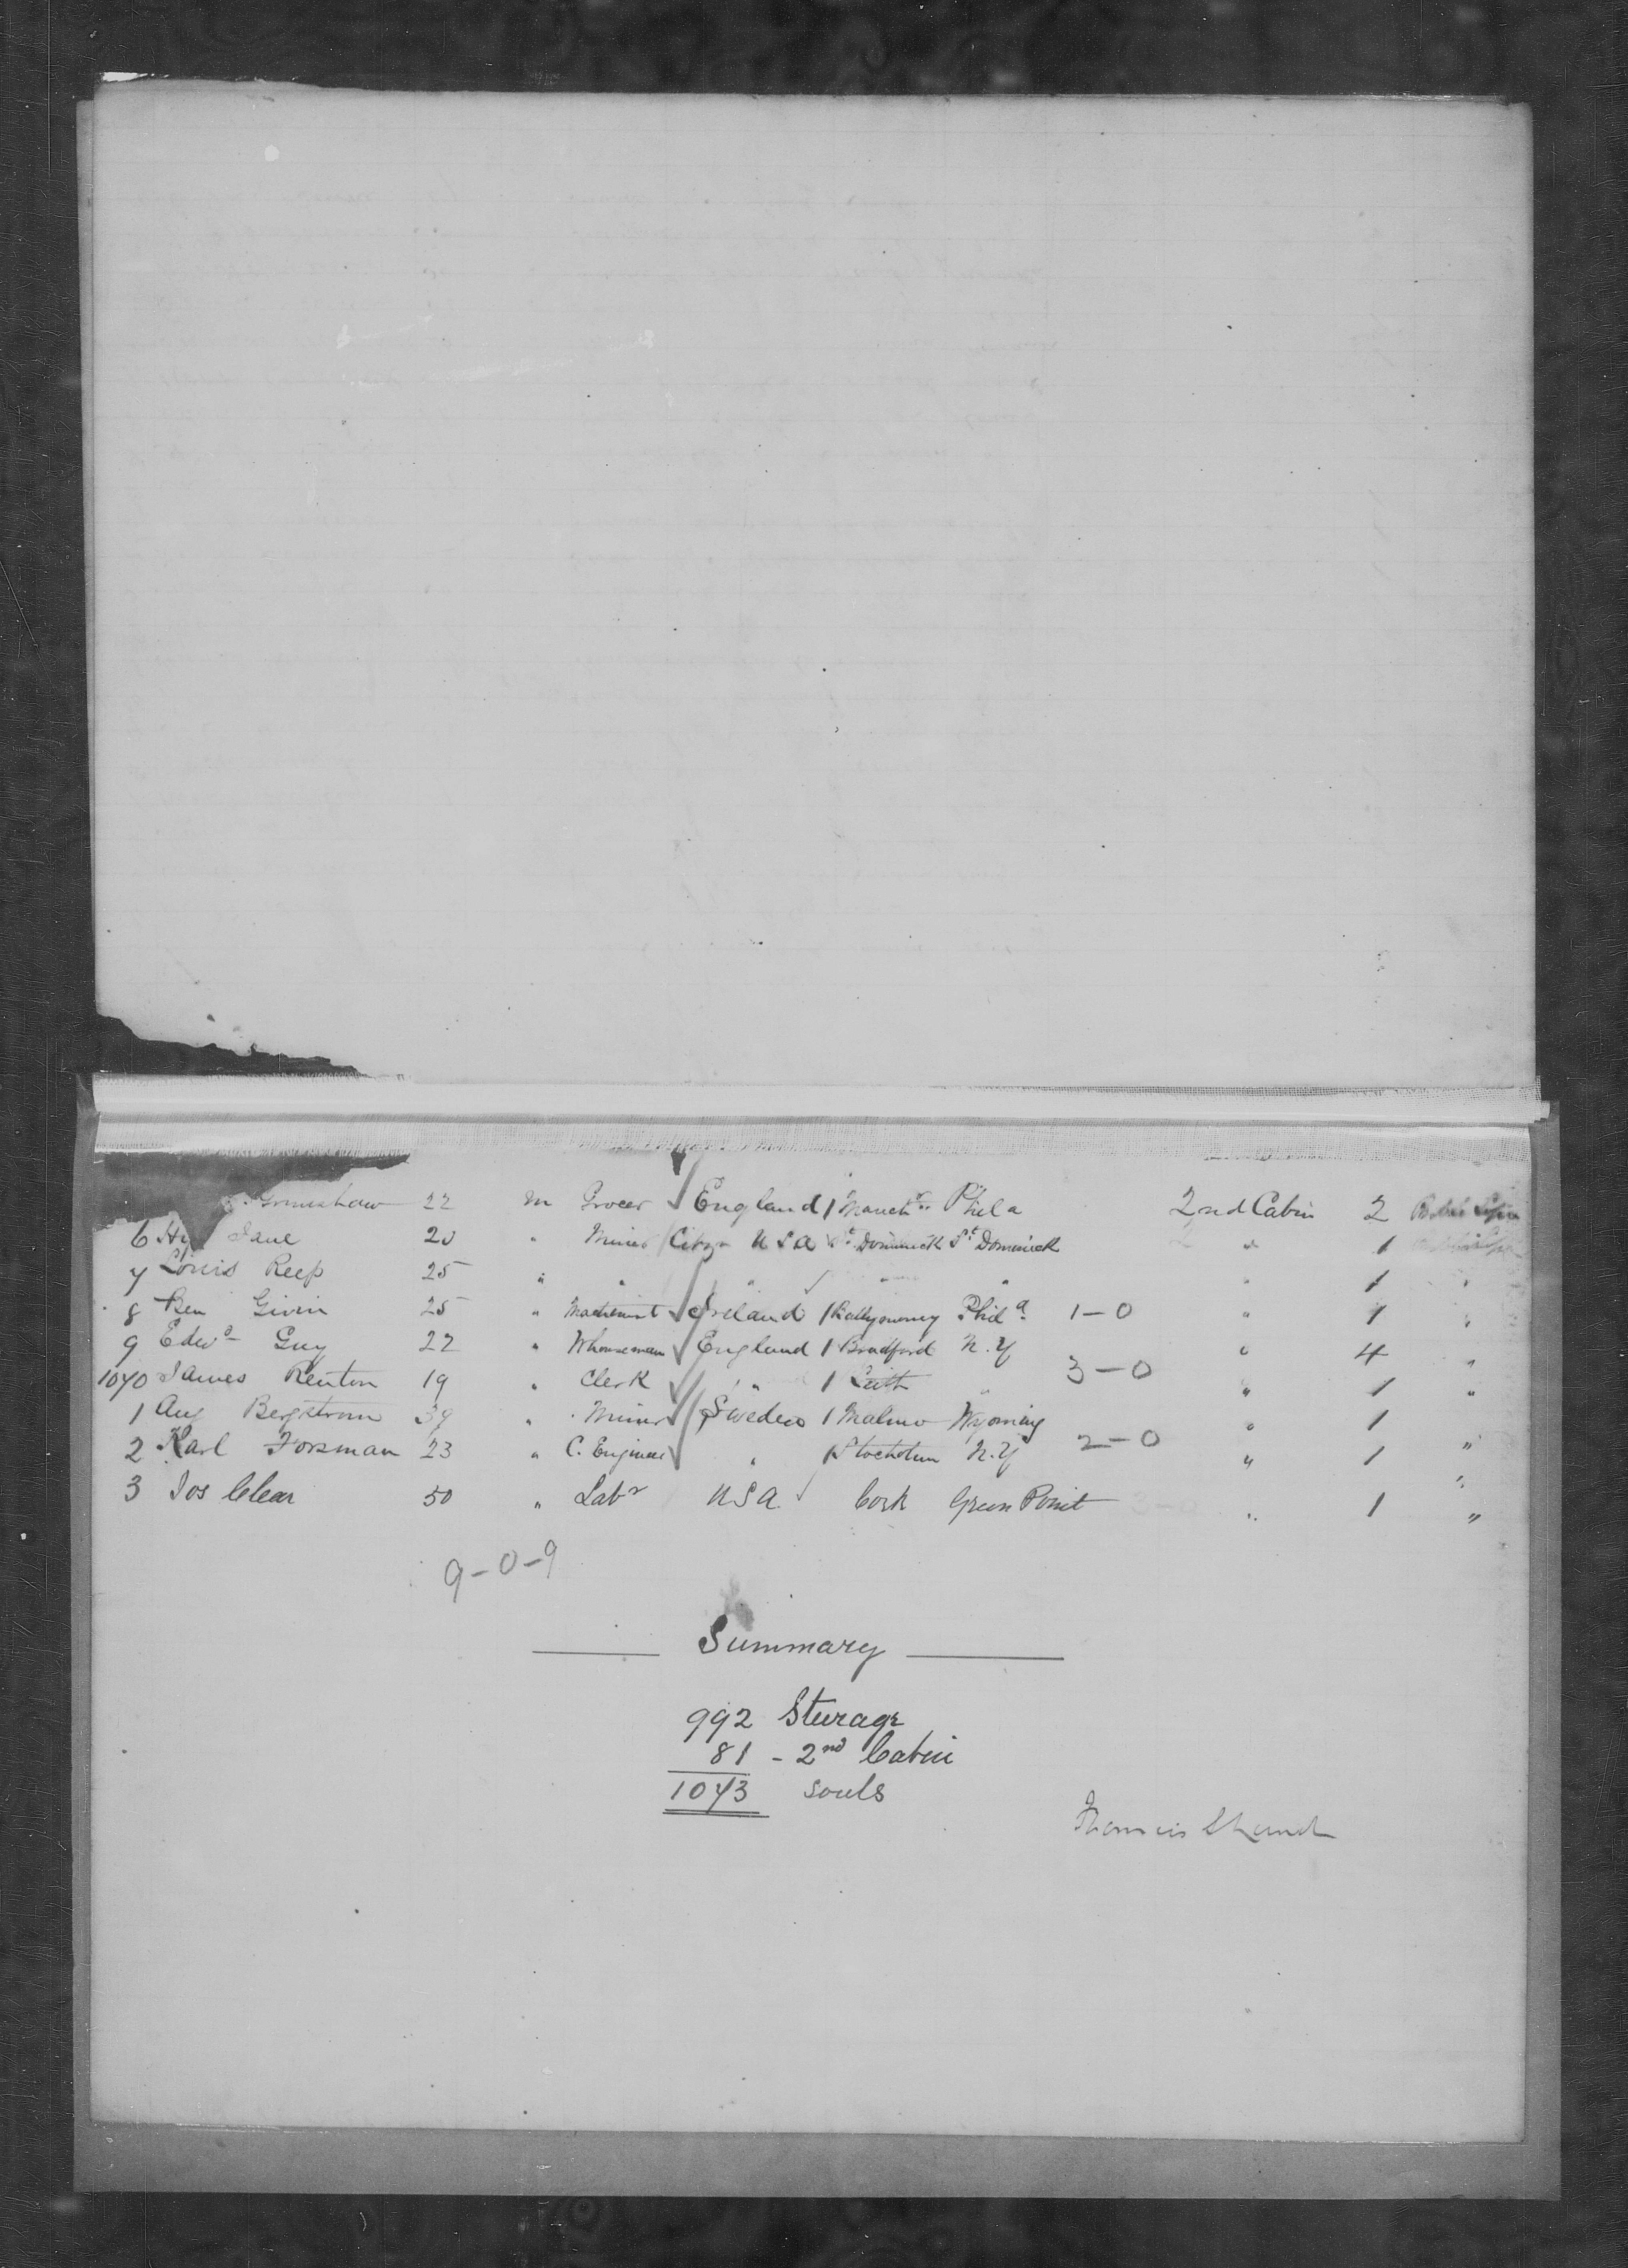 Grimshaw 22 m Grocer England / Manchr Phila 2nd Cabin 2
6 Hy Jane 20 " Miner / Citzn U S A St Dominick St Domenick " 1
7 Louis Reep 25 " " " " " " 1 "
8 Ben Givin 25 " Machinist Ireland / Ballymoney Phila 1-0 " 1 "
9 Edwd Guy 22 " Whouseman England / Bradford N.Y " 4 "
3-0
1070 James Renton 19 " Clerk " / Leith " " 1 "
1 Aug Bergstrom 39 " Miner Sweden / Malmo Wyoming " 1 "
2-0
2 Karl Forsman 23 " C. Engineer " / Stockholm N.Y " 1 "
3 Jos Clear 50 " Labr U S A Cork Green Point " 1 "
9-0-9
Summary
992 Sturage
81 - 2nd Cabin
1073 souls